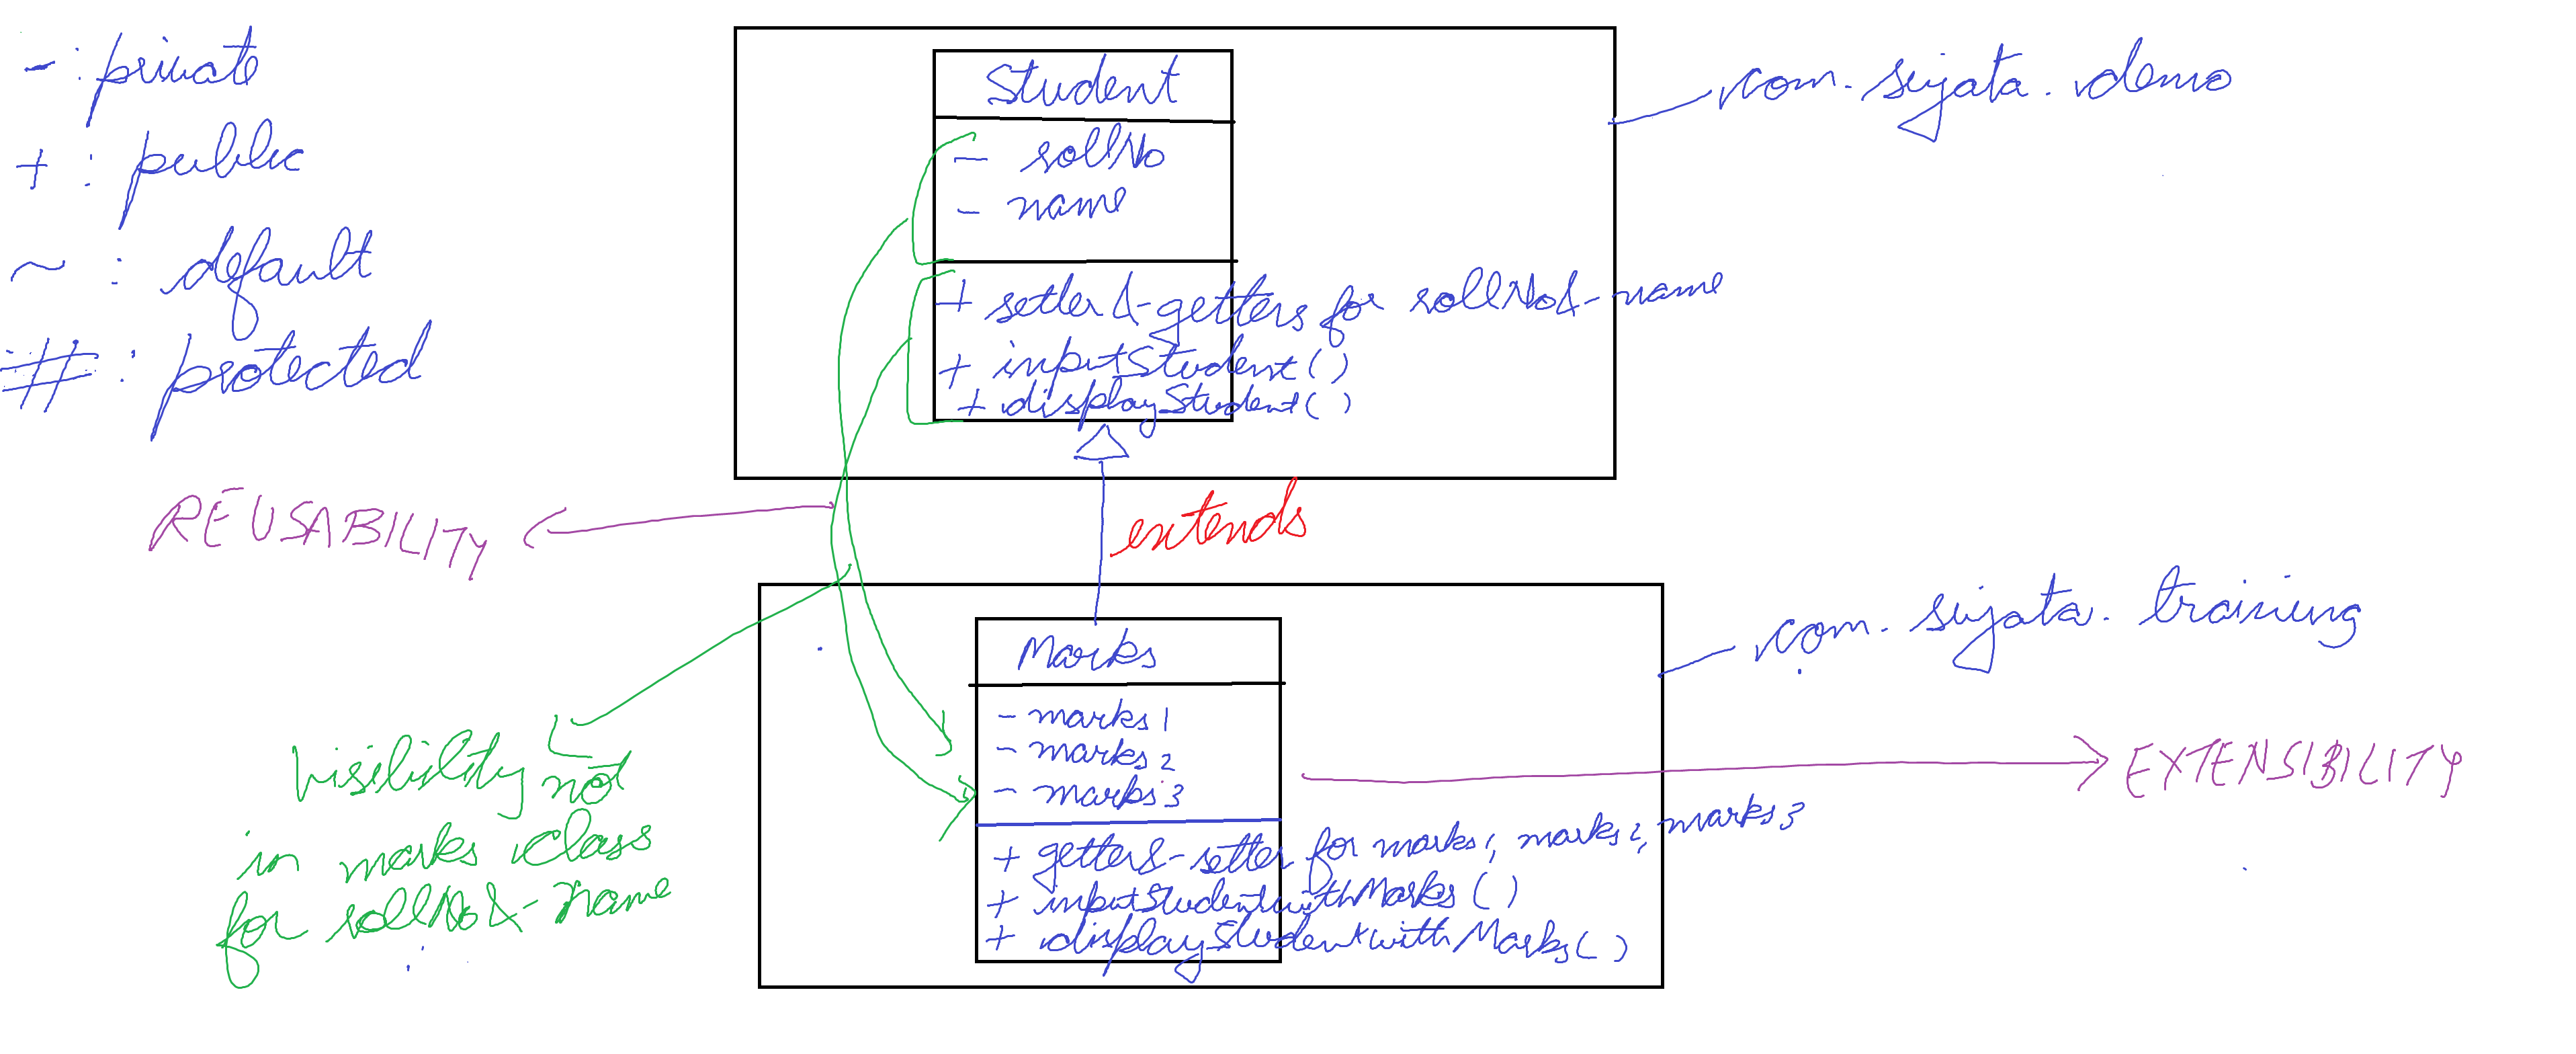 - : private
+ : public
~ : default
# : protected
Student
- rollNo
- name
+ setter & getters for rollNo & name
+ inputStudent()
+ displayStudent()
com. sujata. demo
extends
REUSABILITY
Marks
- marks1
- marks2
- marks3
+ getter & setter for marks1, marks2, marks3
+ inputStudentwithMarks()
+ displayStudentwithMarks()
com. sujata. training
EXTENSIBILITY
Visibility not
in marks class
for rollNo & name